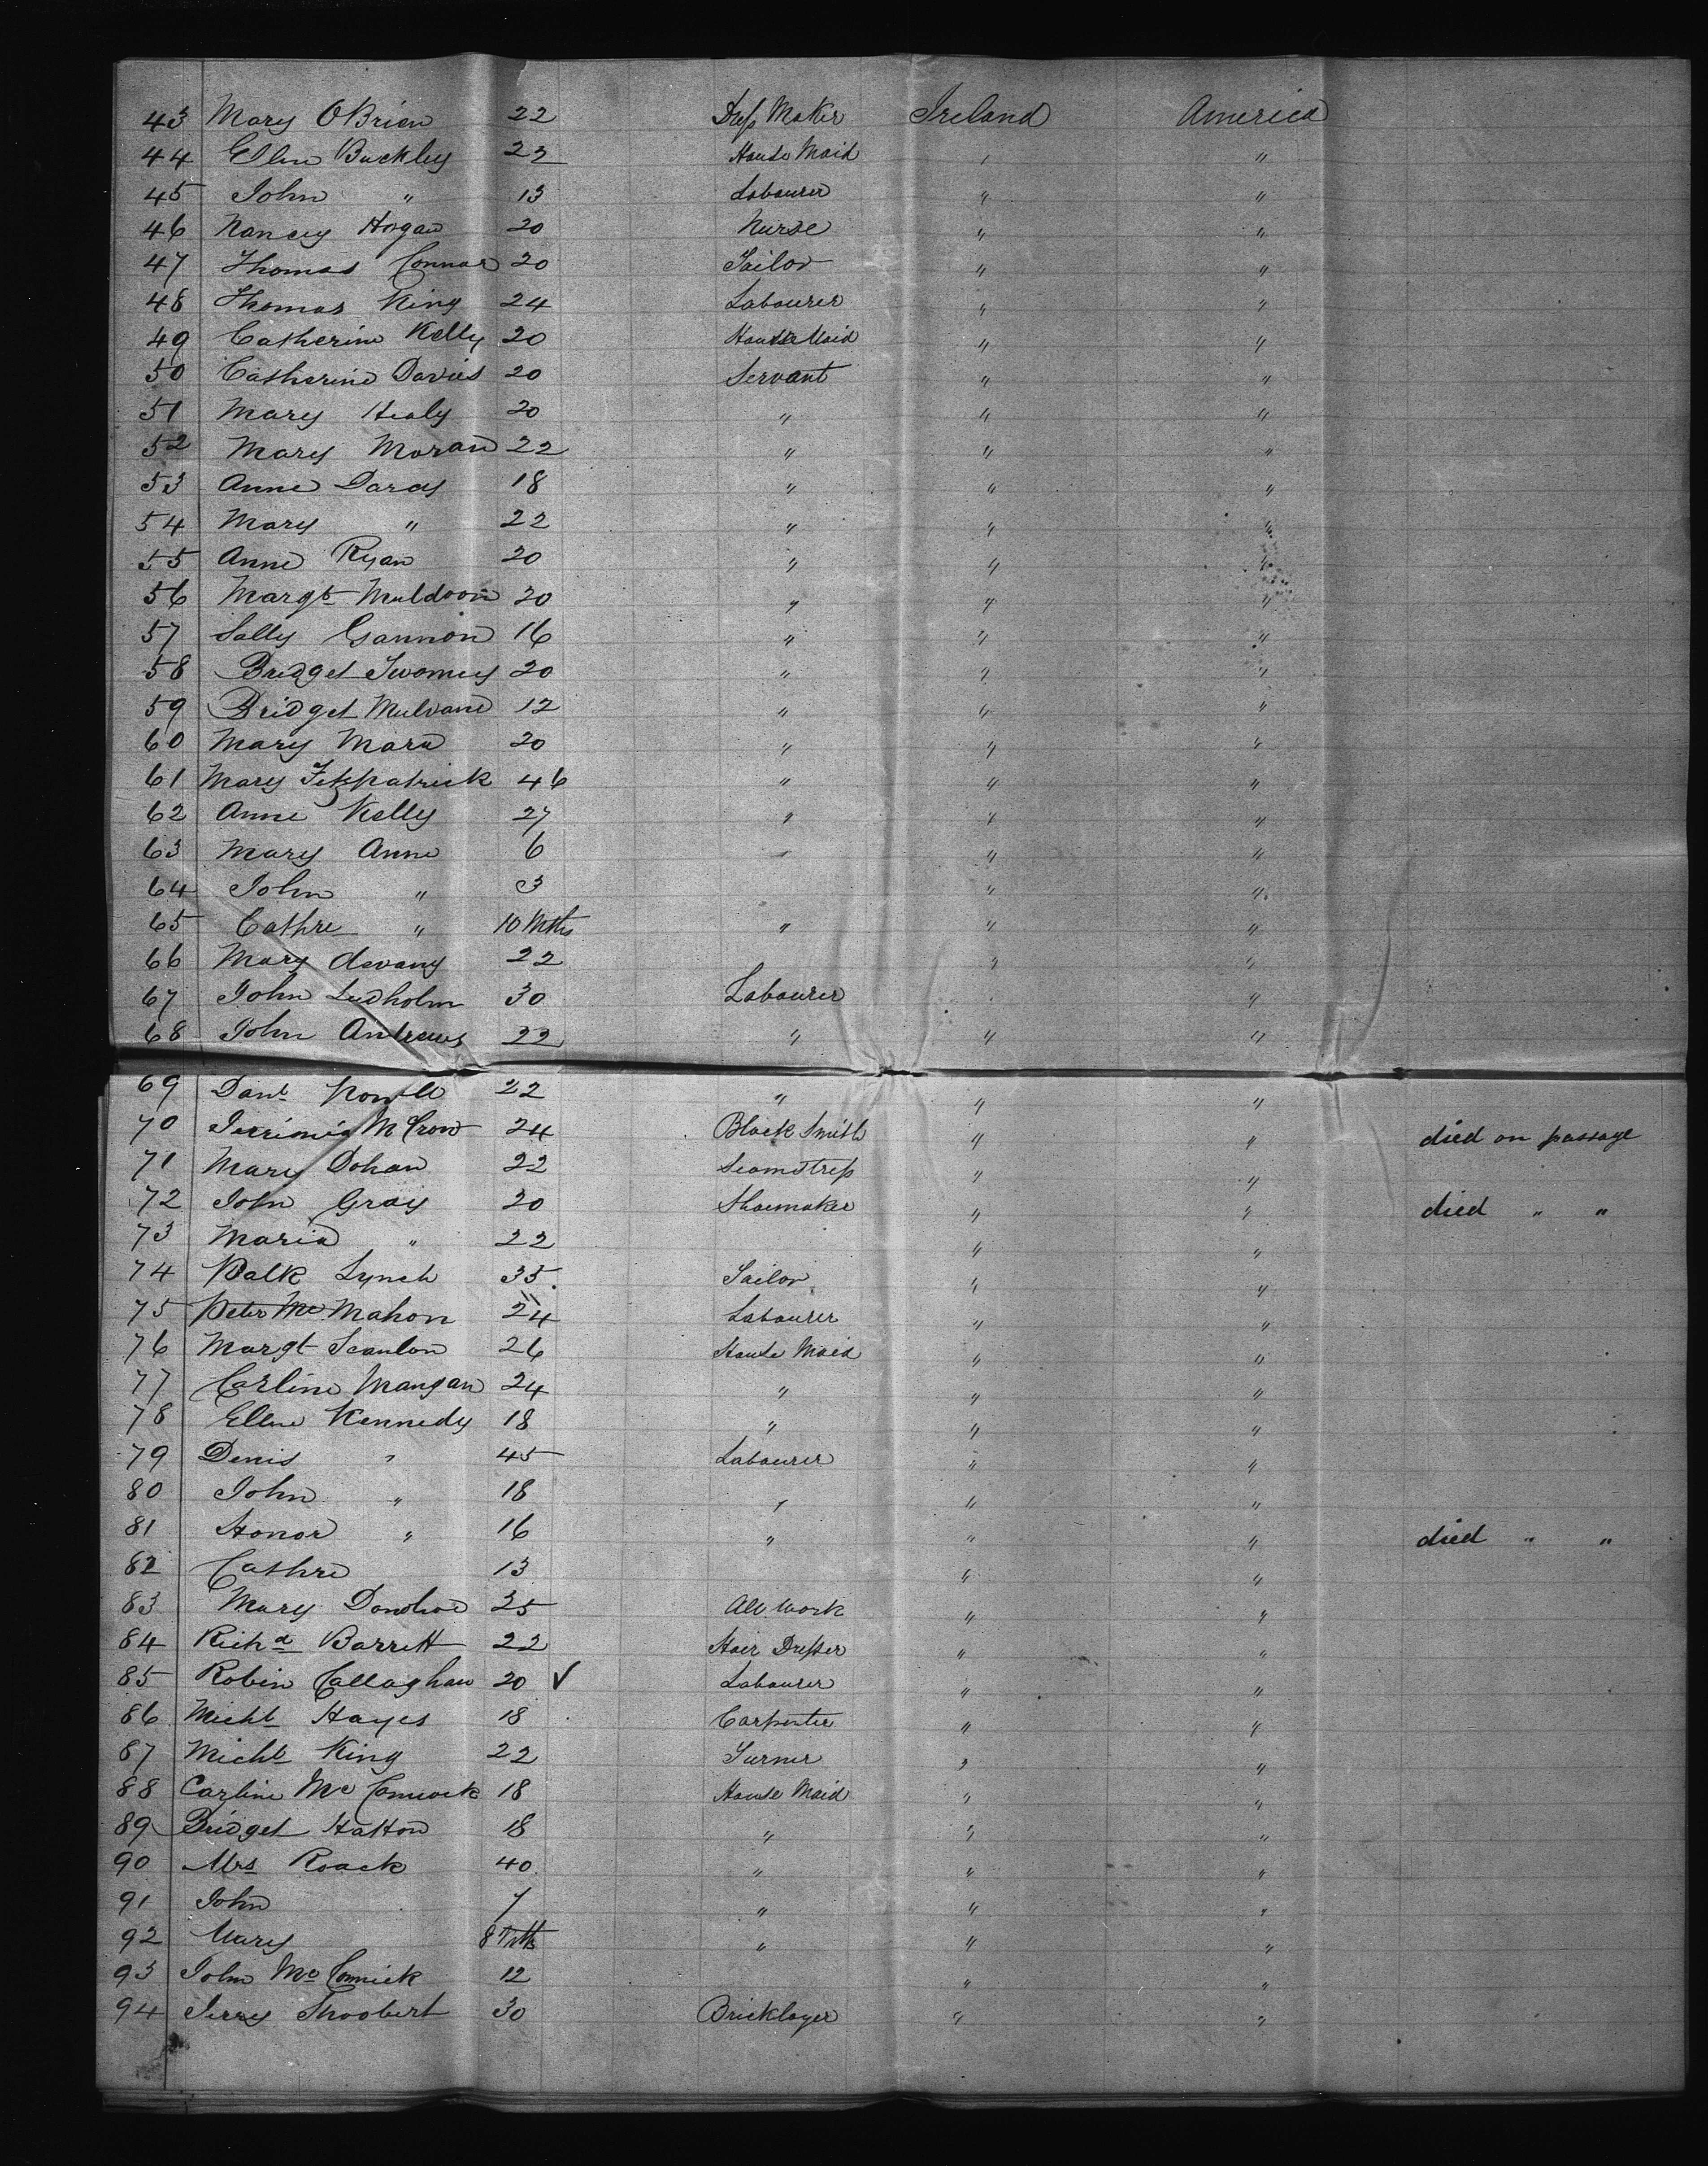 43 Mary O Brien 22 Dress Maker Ireland America
44 Ellen Buckley 22 House Maid " "
45 John " 13 Labourer " "
46 Nancy Hogan 20 Nurse " "
47 Thomas Connor 20 Tailor " "
48 Thomas King 24 Labourer " "
49 Catherine Kelly 20 House Maid " "
50 Catherine Davies 20 Servant " "
51 Mary Healy 20 " " "
52 Mary Moran 22 " " "
53 Anne Darcy 18 " " "
54 Mary " 22 " " "
55 Anne Ryan 20 " " "
56 Margt Muldoon 20 " " "
57 Sally Gannon 16 " " "
58 Bridget Twomey 20 " " "
59 Bridget Mulvane 12 " " "
60 Mary Mara 20 " " "
61 Mary Fitzpatrick 46 " " "
62 Anne Kelly 27 " " "
63 Mary Anne 6 " " "
64 John " 3 " "
65 Cathre " 10 Mths " " "
66 Mary devany 22 " "
67 John Ludholm 30 Labourer "
68 John Andrews 22 " " "
69 Danl 22 " " "
70 Jerrimia McCrow 24 Black Smith " " died on passage
71 Mary Dohan 22 Seamstress " "
72 John Gray 20 Shoemaker " " died " "
73 Maria " 22 " "
74 Lynch 35 Tailor " "
75 Peter Mc Mahon 24 Labourer " "
76 Margt Scanlon 26 House Maid " "
77 Carline Mangan 24 " " "
78 Ellen Kennedy 18 " " "
79 Denis " 45 Labourer " "
80 John " 18 " " "
81 Honor " 16 " " " died " "
82 Cathre 13 " "
83 Mary Donohoe 25 All Work " "
84 Richd Barrett 22 Hair Dresser " "
85 Robin Callaghan 20 ✓ Labourer " "
86 Michl Hayes 18 Carpenter " "
87 Michl King 22 Turner " "
88 Carline Mc 18 House Maid " "
89 Bridget Hatton 18 " " "
90 Mrs Roack 40 " " "
91 John 7 " " "
92 Mary 8 Mths " " "
93 John Mc Cormick 12 " "
94 Jerry Thoobert 30 Bricklayer " "